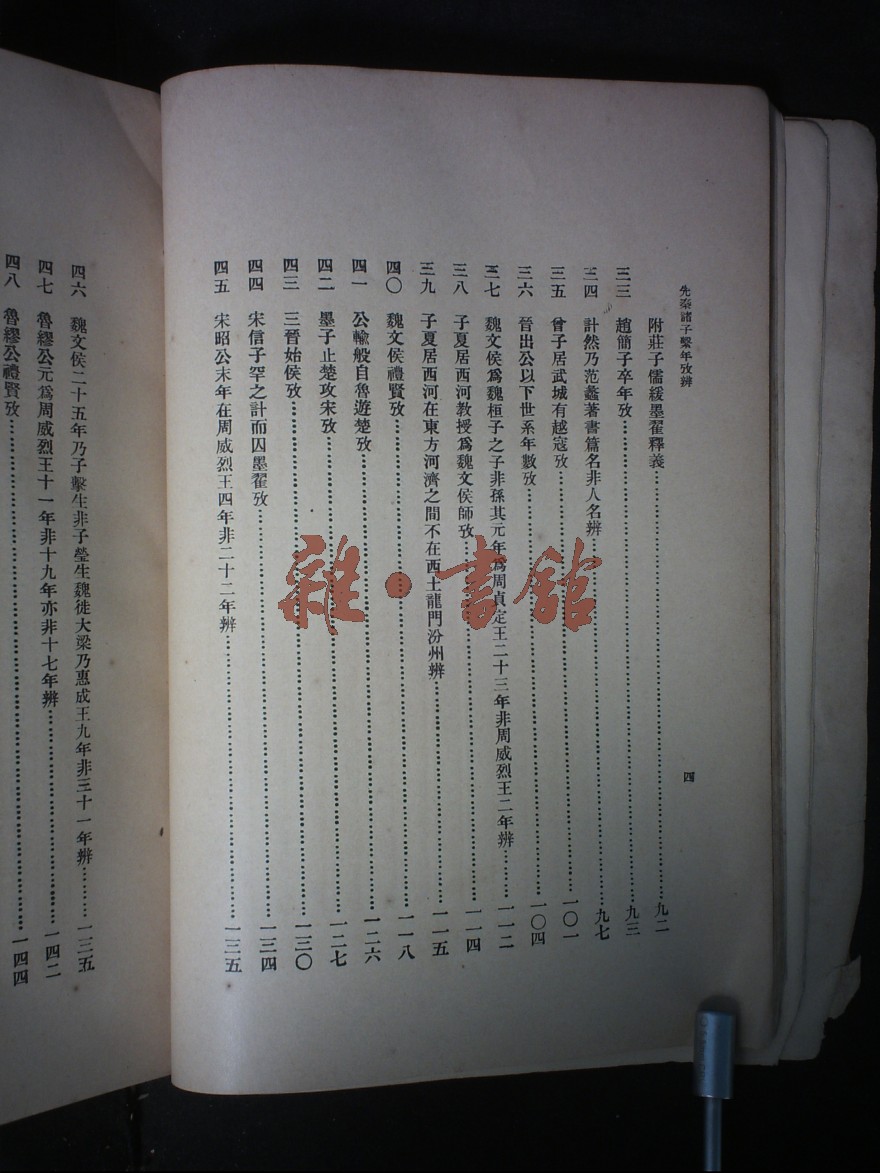 先秦諸子繫年攷辨
四
附莊子儒緩墨翟釋義……九二
三三 趙簡子卒年攷……九三
三四 計然乃范蠡著書篇名非人名辨……九七
三五 曾子居武城有越寇攷……一〇一
三六 晉出公以下世系年數攷……一〇四
三七 魏文侯爲魏桓子之子非孫其元年爲周貞定王二十三年非周威烈王二年辨……一一二
三八 子夏居西河教授爲魏文侯師攷……一一四
三九 子夏居西河在東方河濟之間不在西土龍門汾州辨……一一五
四〇 魏文侯禮賢攷……一一八
四一 公輸般自魯遊楚攷……一二六
四二 墨子止楚攻宋攷……一二七
四三 三晉始侯攷……一三〇
四四 宋信子罕之計而囚墨翟攷……一三四
四五 宋昭公末年在周威烈王四年非二十二年辨……一三五
四六 魏文侯二十五年乃子擊生非子罃生魏徙大梁乃惠成王九年非三十一年辨……一三五
四七 魯繆公元爲周威烈王十一年非十九年亦非十七年辨……一四二
四八 魯繆公禮賢攷……一四四
雜·書館